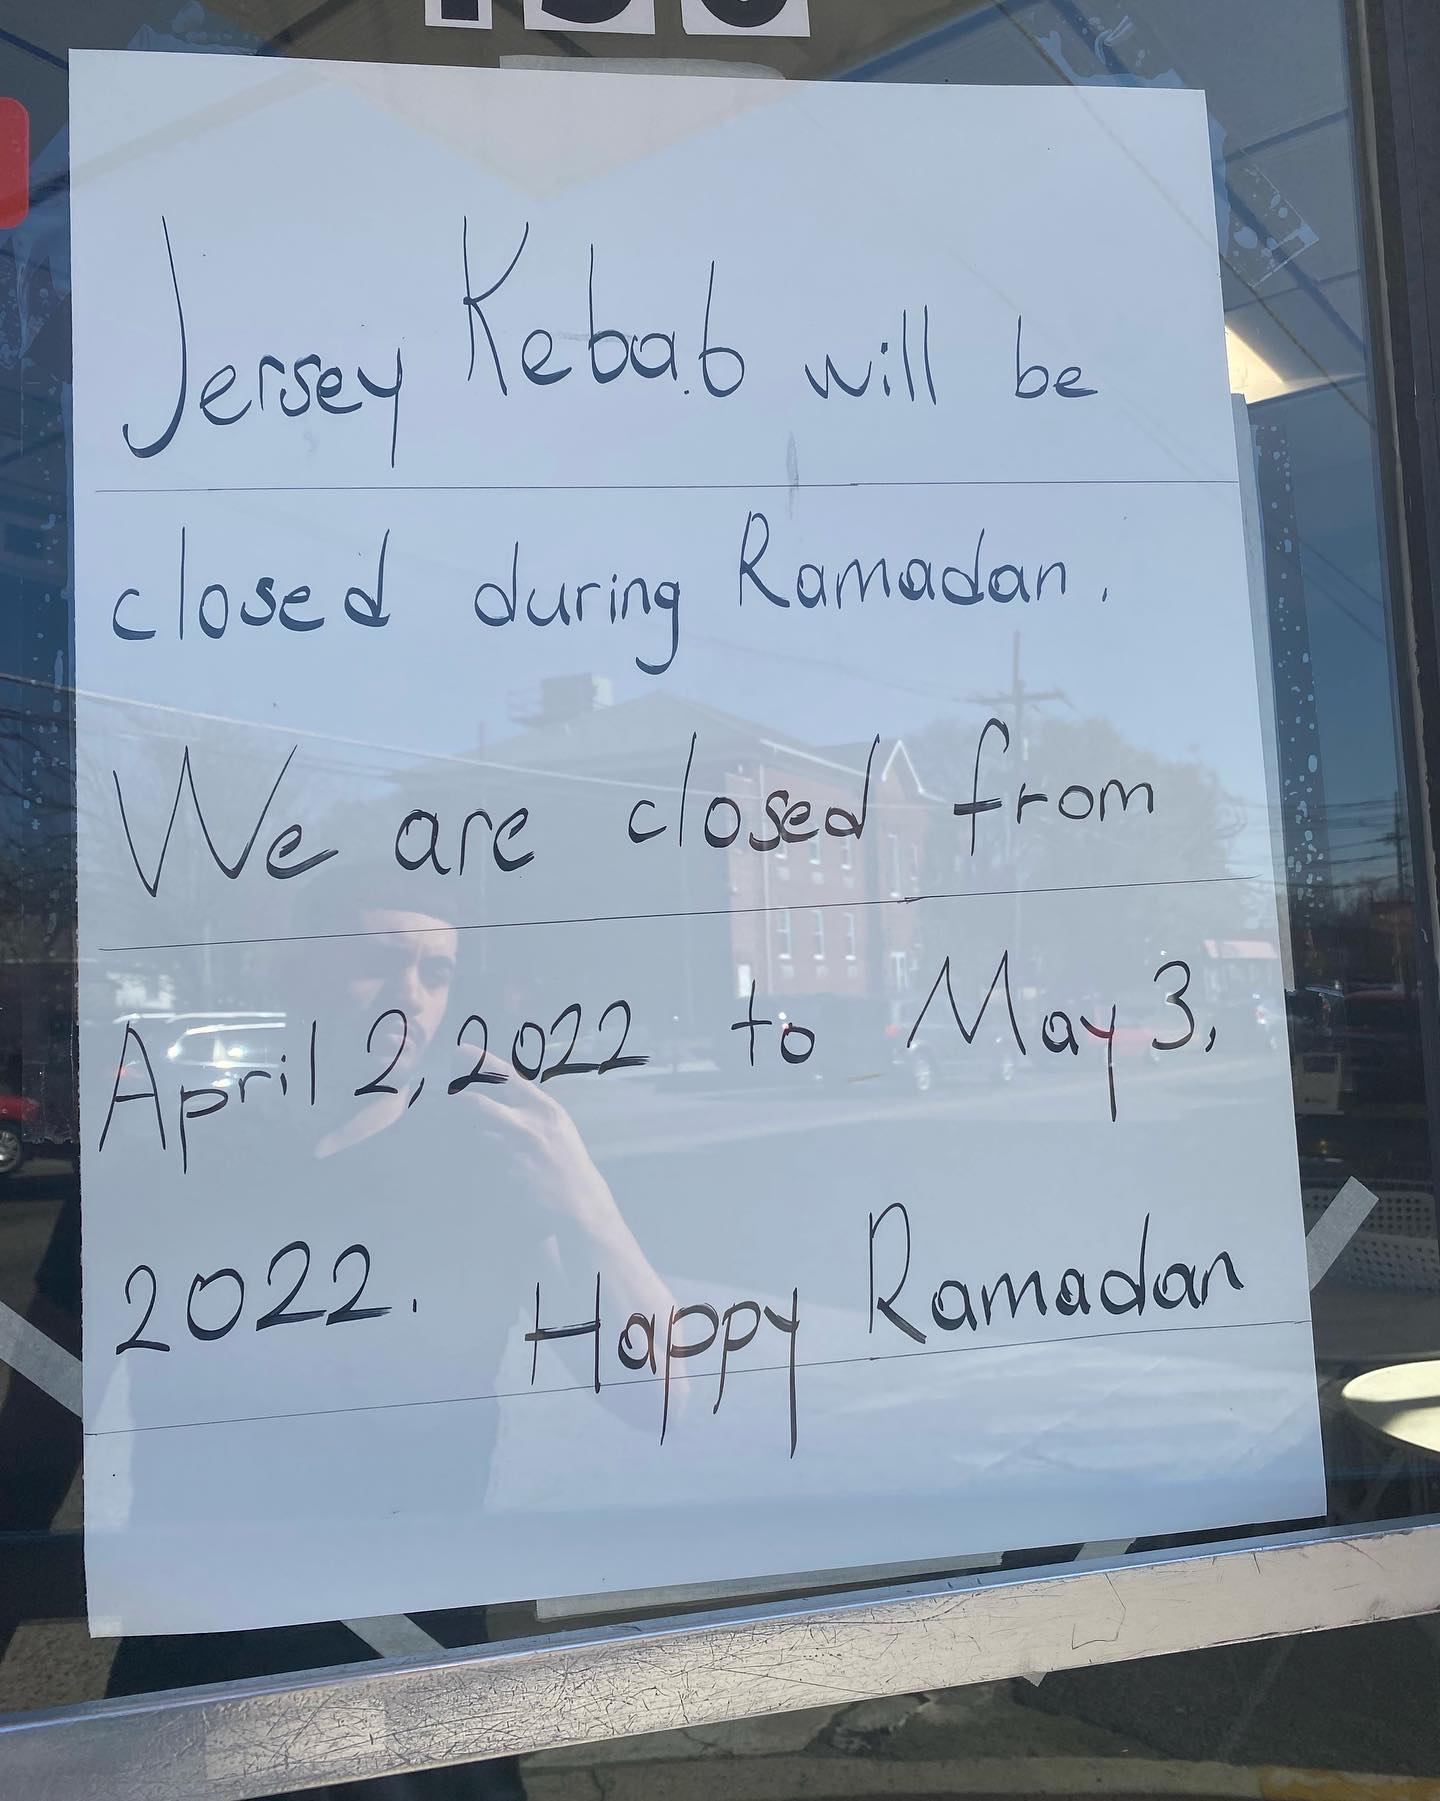 Jersey Kebab will be
closed during Ramadan.
We are closed from
April 2, 2022 to May 3,
2022. Happy Ramadan